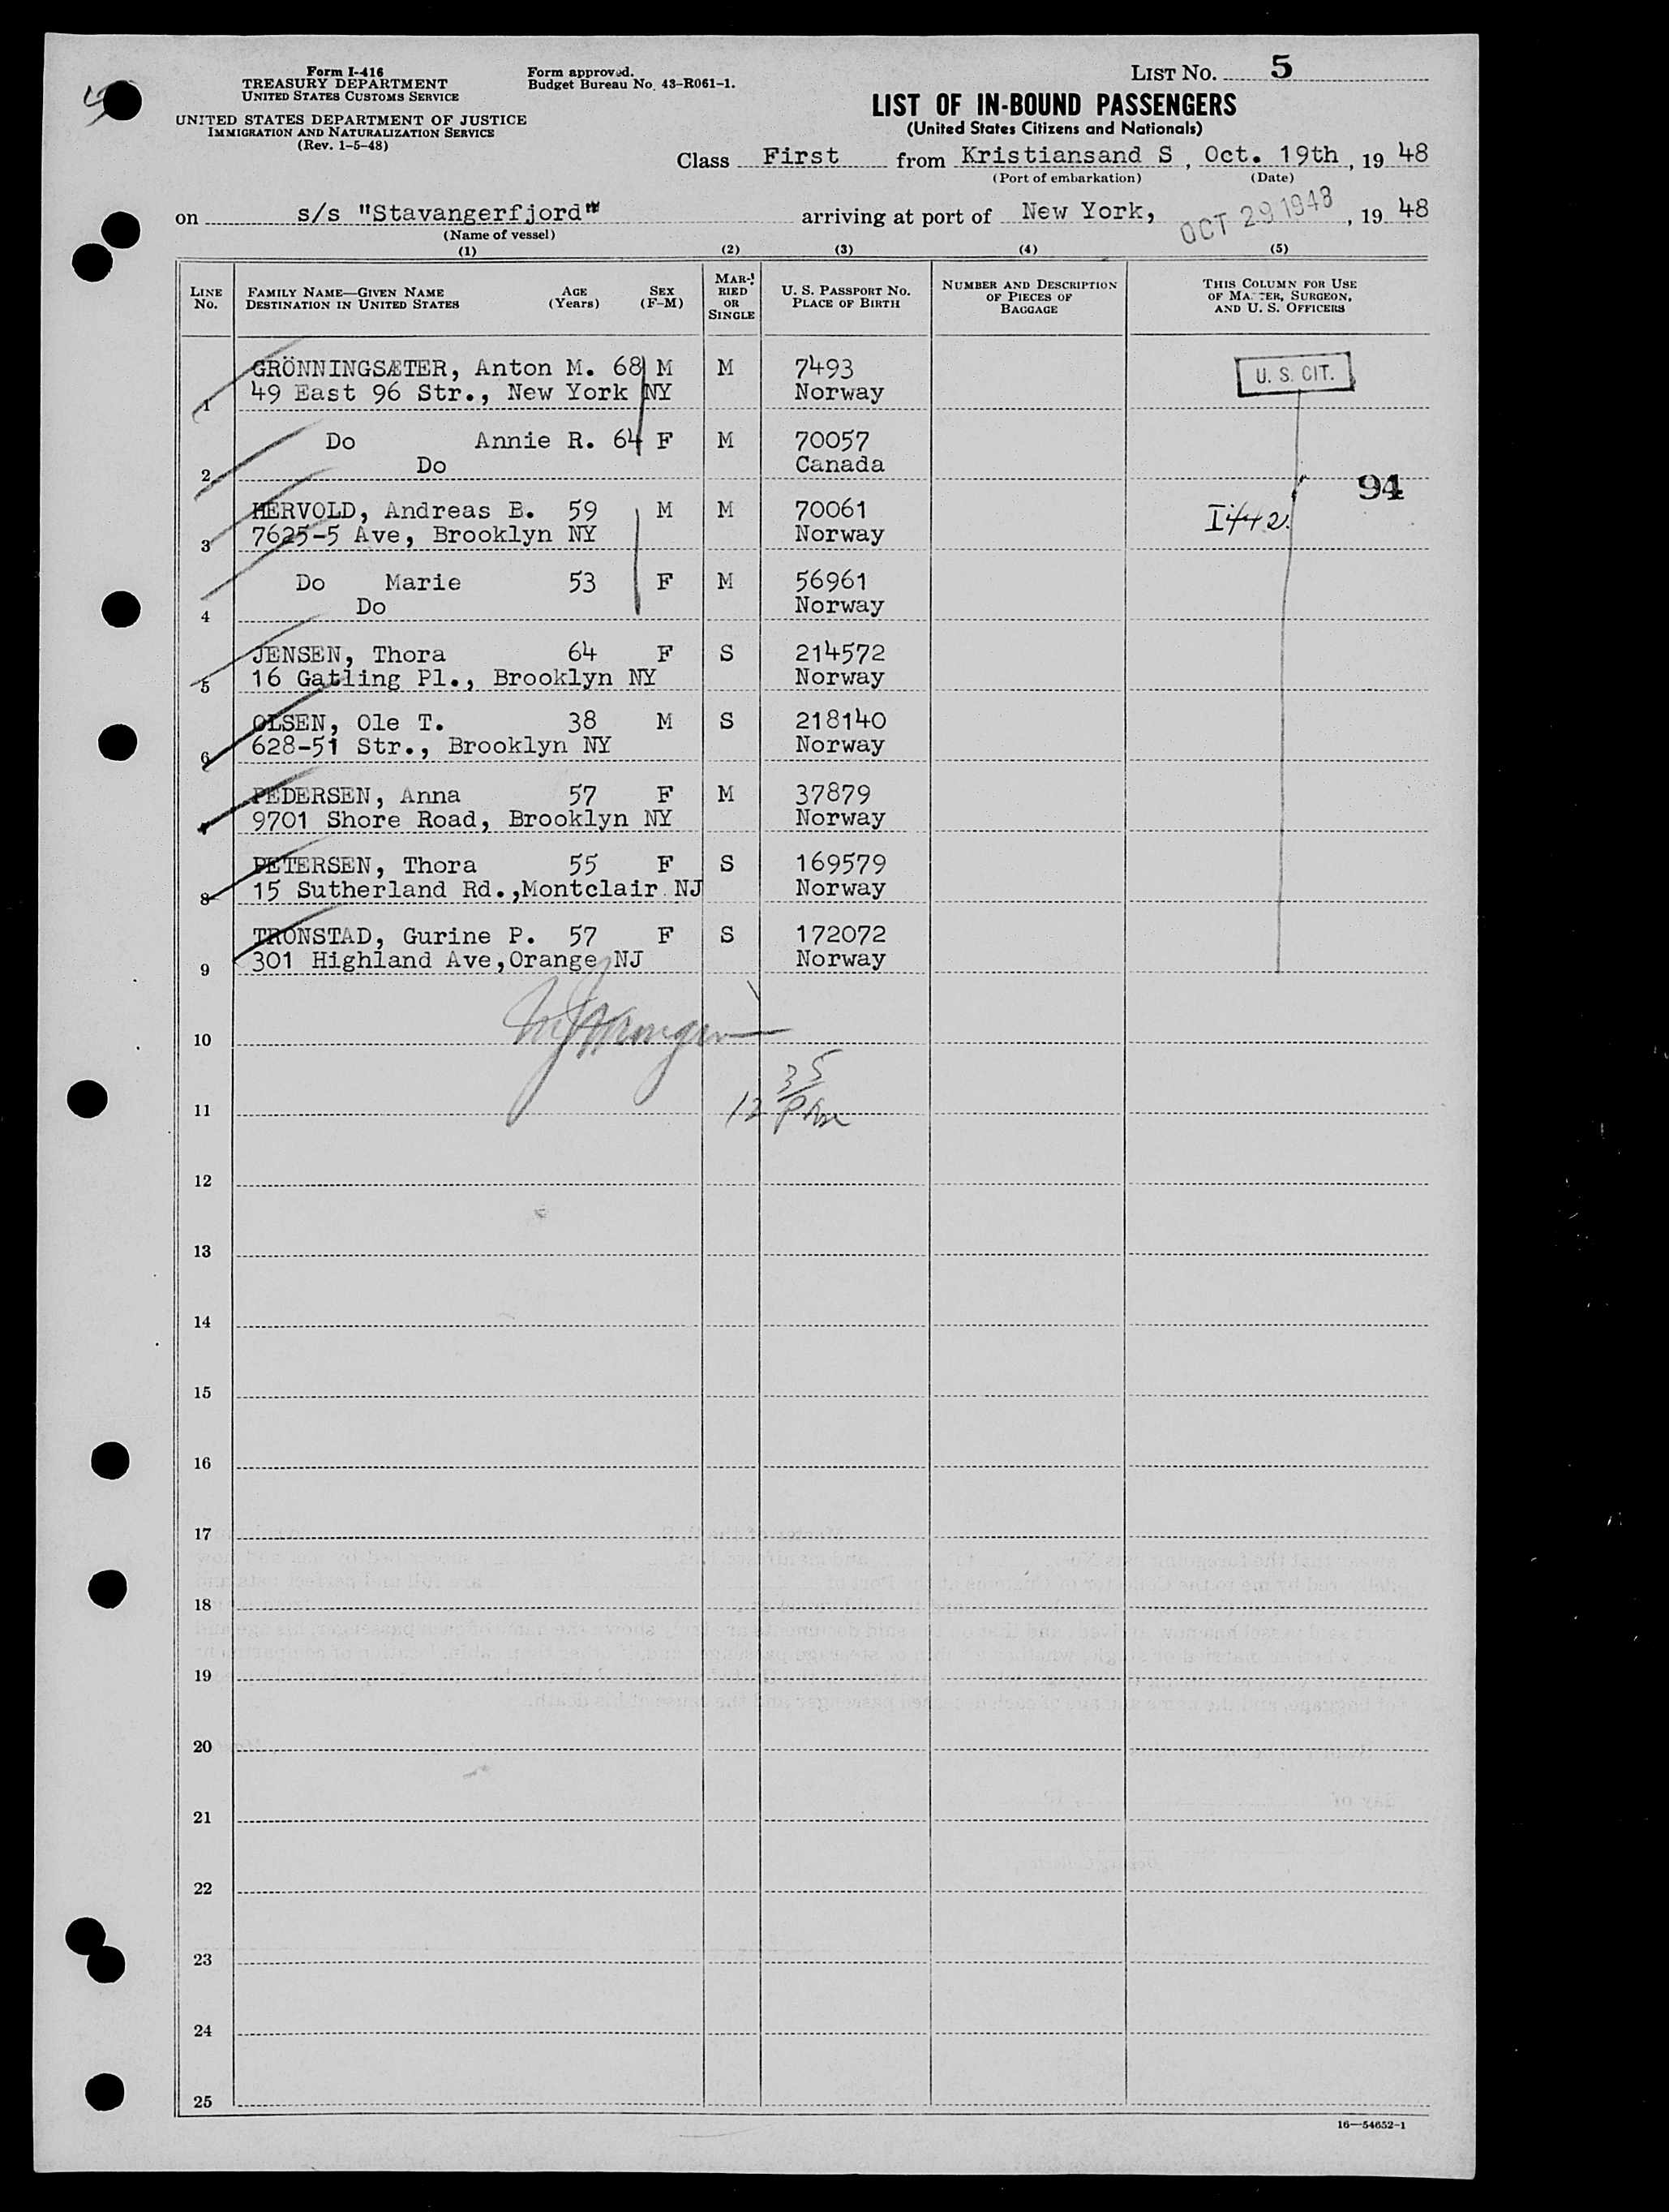 Form I-416
TREASURY DEPARTMENT
UNITED STATES CUSTOMS SERVICE
UNITED STATES DEPARTMENT OF JUSTICE
IMMIGRATION AND NATURALIZATION SERVICE
(Rev. 1-5-48)
Form approved.
Budget Bureau No. 43-R061-1.
LIST NO. 5
LIST OF IN-BOUND PASSENGERS
(United States Citizens and Nationals)
Class First from Kristiansand S, Oct. 19th, 19 48
(Port of embarkation) (Date)
on s/s "Stavangerfjord" arriving at port of New York, OCT 29 1948, 19 48
(Name of vessel)
(1) (2) (3) (4) (5)
LINE NO. FAMILY NAME—GIVEN NAME DESTINATION IN UNITED STATES AGE (Years) SEX (F-M) MARRIED OR SINGLE U. S. PASSPORT NO. PLACE OF BIRTH NUMBER AND DESCRIPTION OF PIECES OF BAGGAGE THIS COLUMN FOR USE OF MASTER, SURGEON, AND U. S. OFFICERS
GRÖNNINGSÆTER, Anton M. 68 M M 7493 U. S. CIT.
1 49 East 96 Str., New York NY Norway
Do Annie R. 64 F M 70057
2 Do Canada
94
HERVOLD, Andreas B. 59 M M 70061 I442
3 7625-5 Ave, Brooklyn NY Norway
Do Marie 53 F M 56961
4 Do Norway
JENSEN, Thora 64 F S 214572
5 16 Gatling Pl., Brooklyn NY Norway
OLSEN, Ole T. 38 M S 218140
6 628-51 Str., Brooklyn NY Norway
PEDERSEN, Anna 57 F M 37879
9701 Shore Road, Brooklyn NY Norway
PETERSEN, Thora 55 F S 169579
8 15 Sutherland Rd.,Montclair NJ Norway
TRONSTAD, Gurine P. 57 F S 172072
9 301 Highland Ave,Orange NJ Norway
10
11 12 35
12
13
14
15
16
17
18
19
20
21
22
23
24
25
16—54652-1